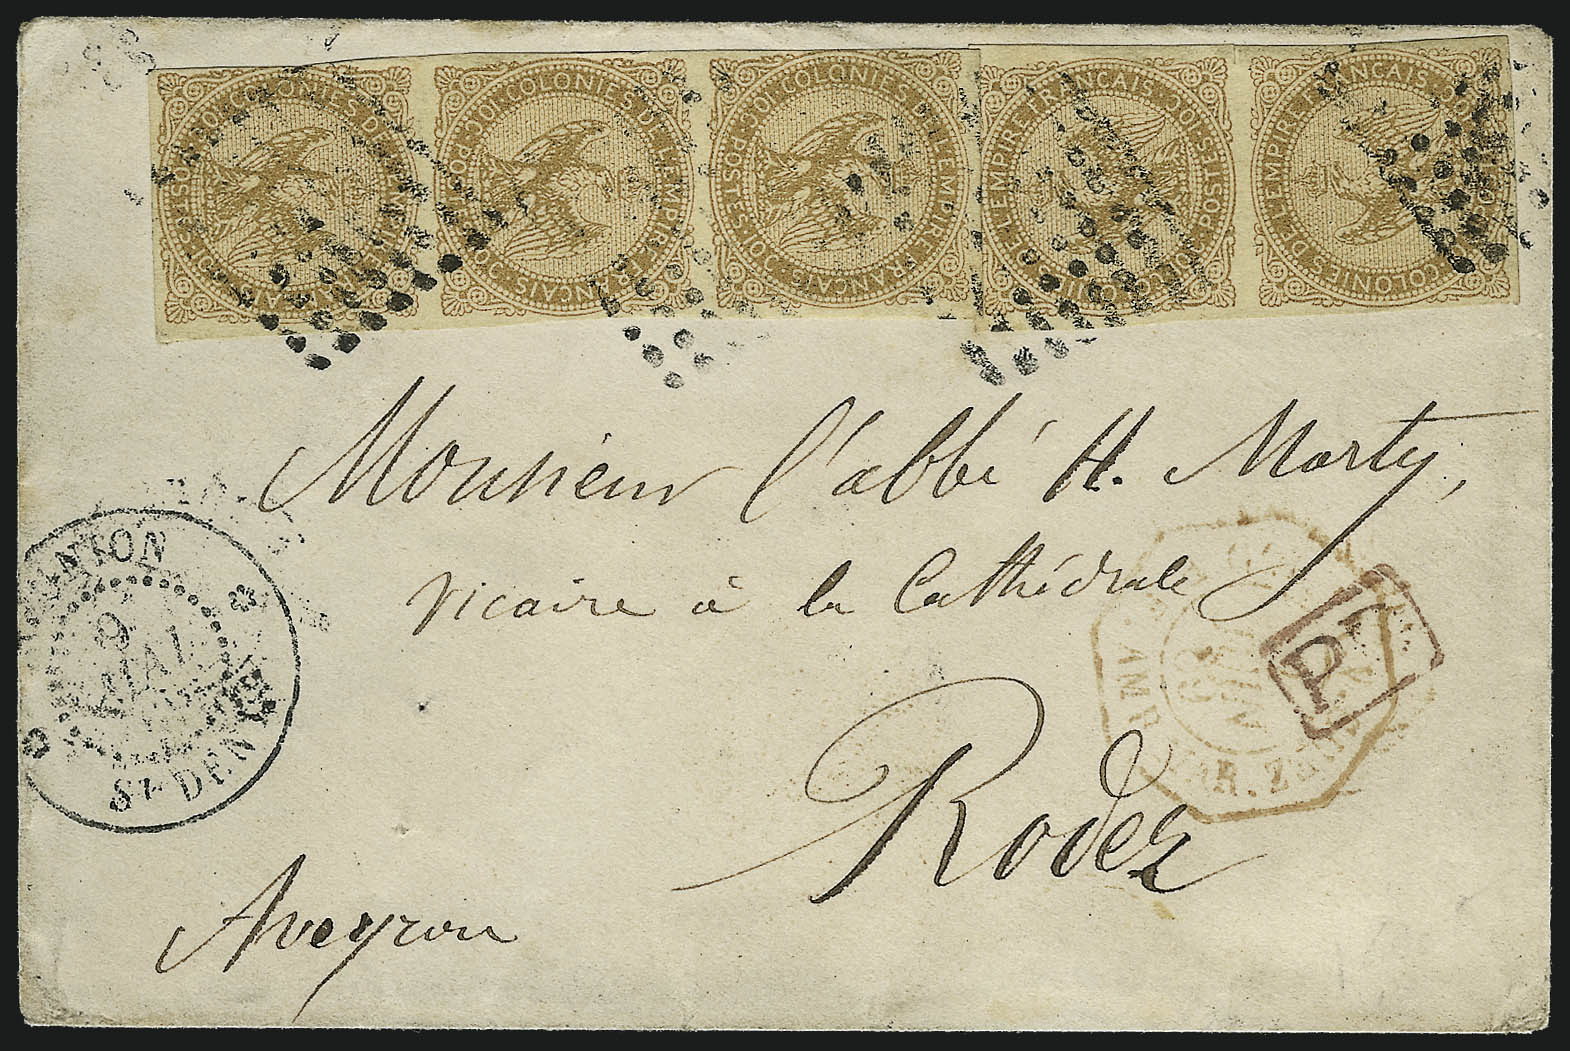 COLONIES DE L'EMPIRE FRANÇAIS · POSTES · 10C
COLONIES DE L'EMPIRE FRANÇAIS · POSTES · 10C
COLONIES DE L'EMPIRE FRANÇAIS · POSTES · 10C
COLONIES DE L'EMPIRE FRANÇAIS · POSTES · 10C
COLONIES DE L'EMPIRE FRANÇAIS · POSTES · 10C
Monsieur l'abbé H. Marty,
vicaire à la Cathédrale
Rodez
Aveyron
9
MAI
ST DENIS
P.P.